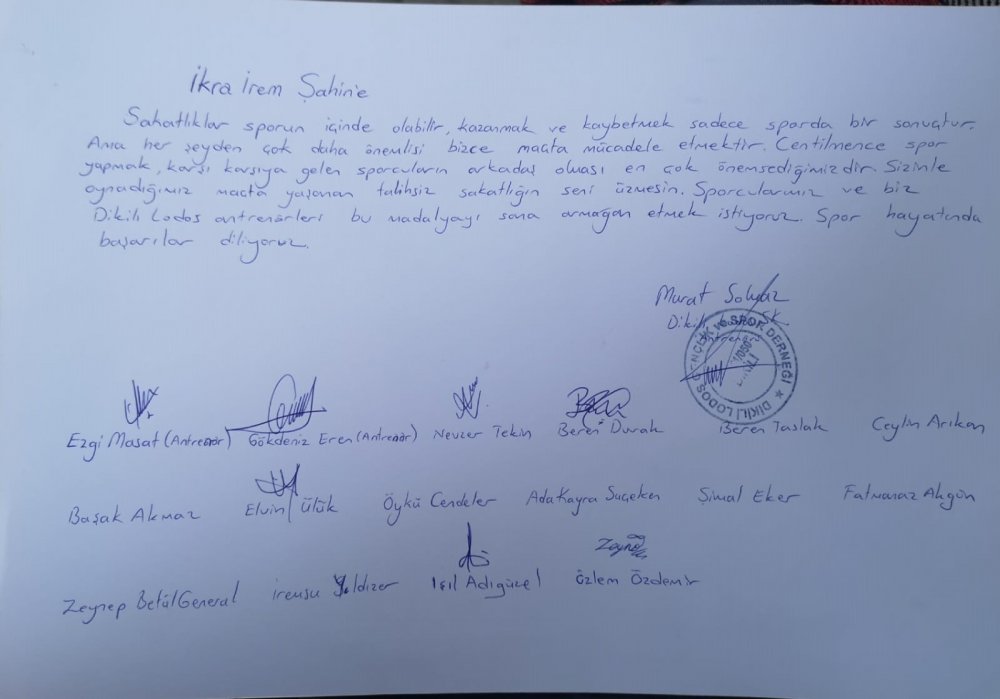 İkra İrem Şahin'e
Sakatlıklar sporun içinde olabilir, kazanmak ve kaybetmek sadece sporda bir sonuçtur.
Ama her şeyden çok daha önemlisi bizce maçta mücadele etmektir. Centilmence spor
yapmak, karşı karşıya gelen sporcuların arkadaş olması en çok önemsediğimizdir. Sizinle
oynadığımız maçta yaşanan talihsiz sakatlığın seni üzmesin. Sporcularımız ve biz
Dikili Lodos antrenörleri bu madalyayı sana armağan etmek istiyoruz. Spor hayatında
başarılar diliyoruz.
Murat Solmaz
Dikili SK
Antrenörü
GENÇLİK ve SPOR DERNEĞİ ★ DİKİLİ LODOS
Ezgi Masat (Antrenör) Gökdeniz Eren (Antrenör) Nevzer Tekin Beren Durak Beren Taslak Ceylin Arıkan
Başak Akmaz Elvin Ülük Öykü Cendeler Ada Kayra Suçeken Şimal Eker Fatmanaz Akgün
Zeynep Betül General İremsu Yıldızer Işıl Adıgüzel Özlem Özdemir